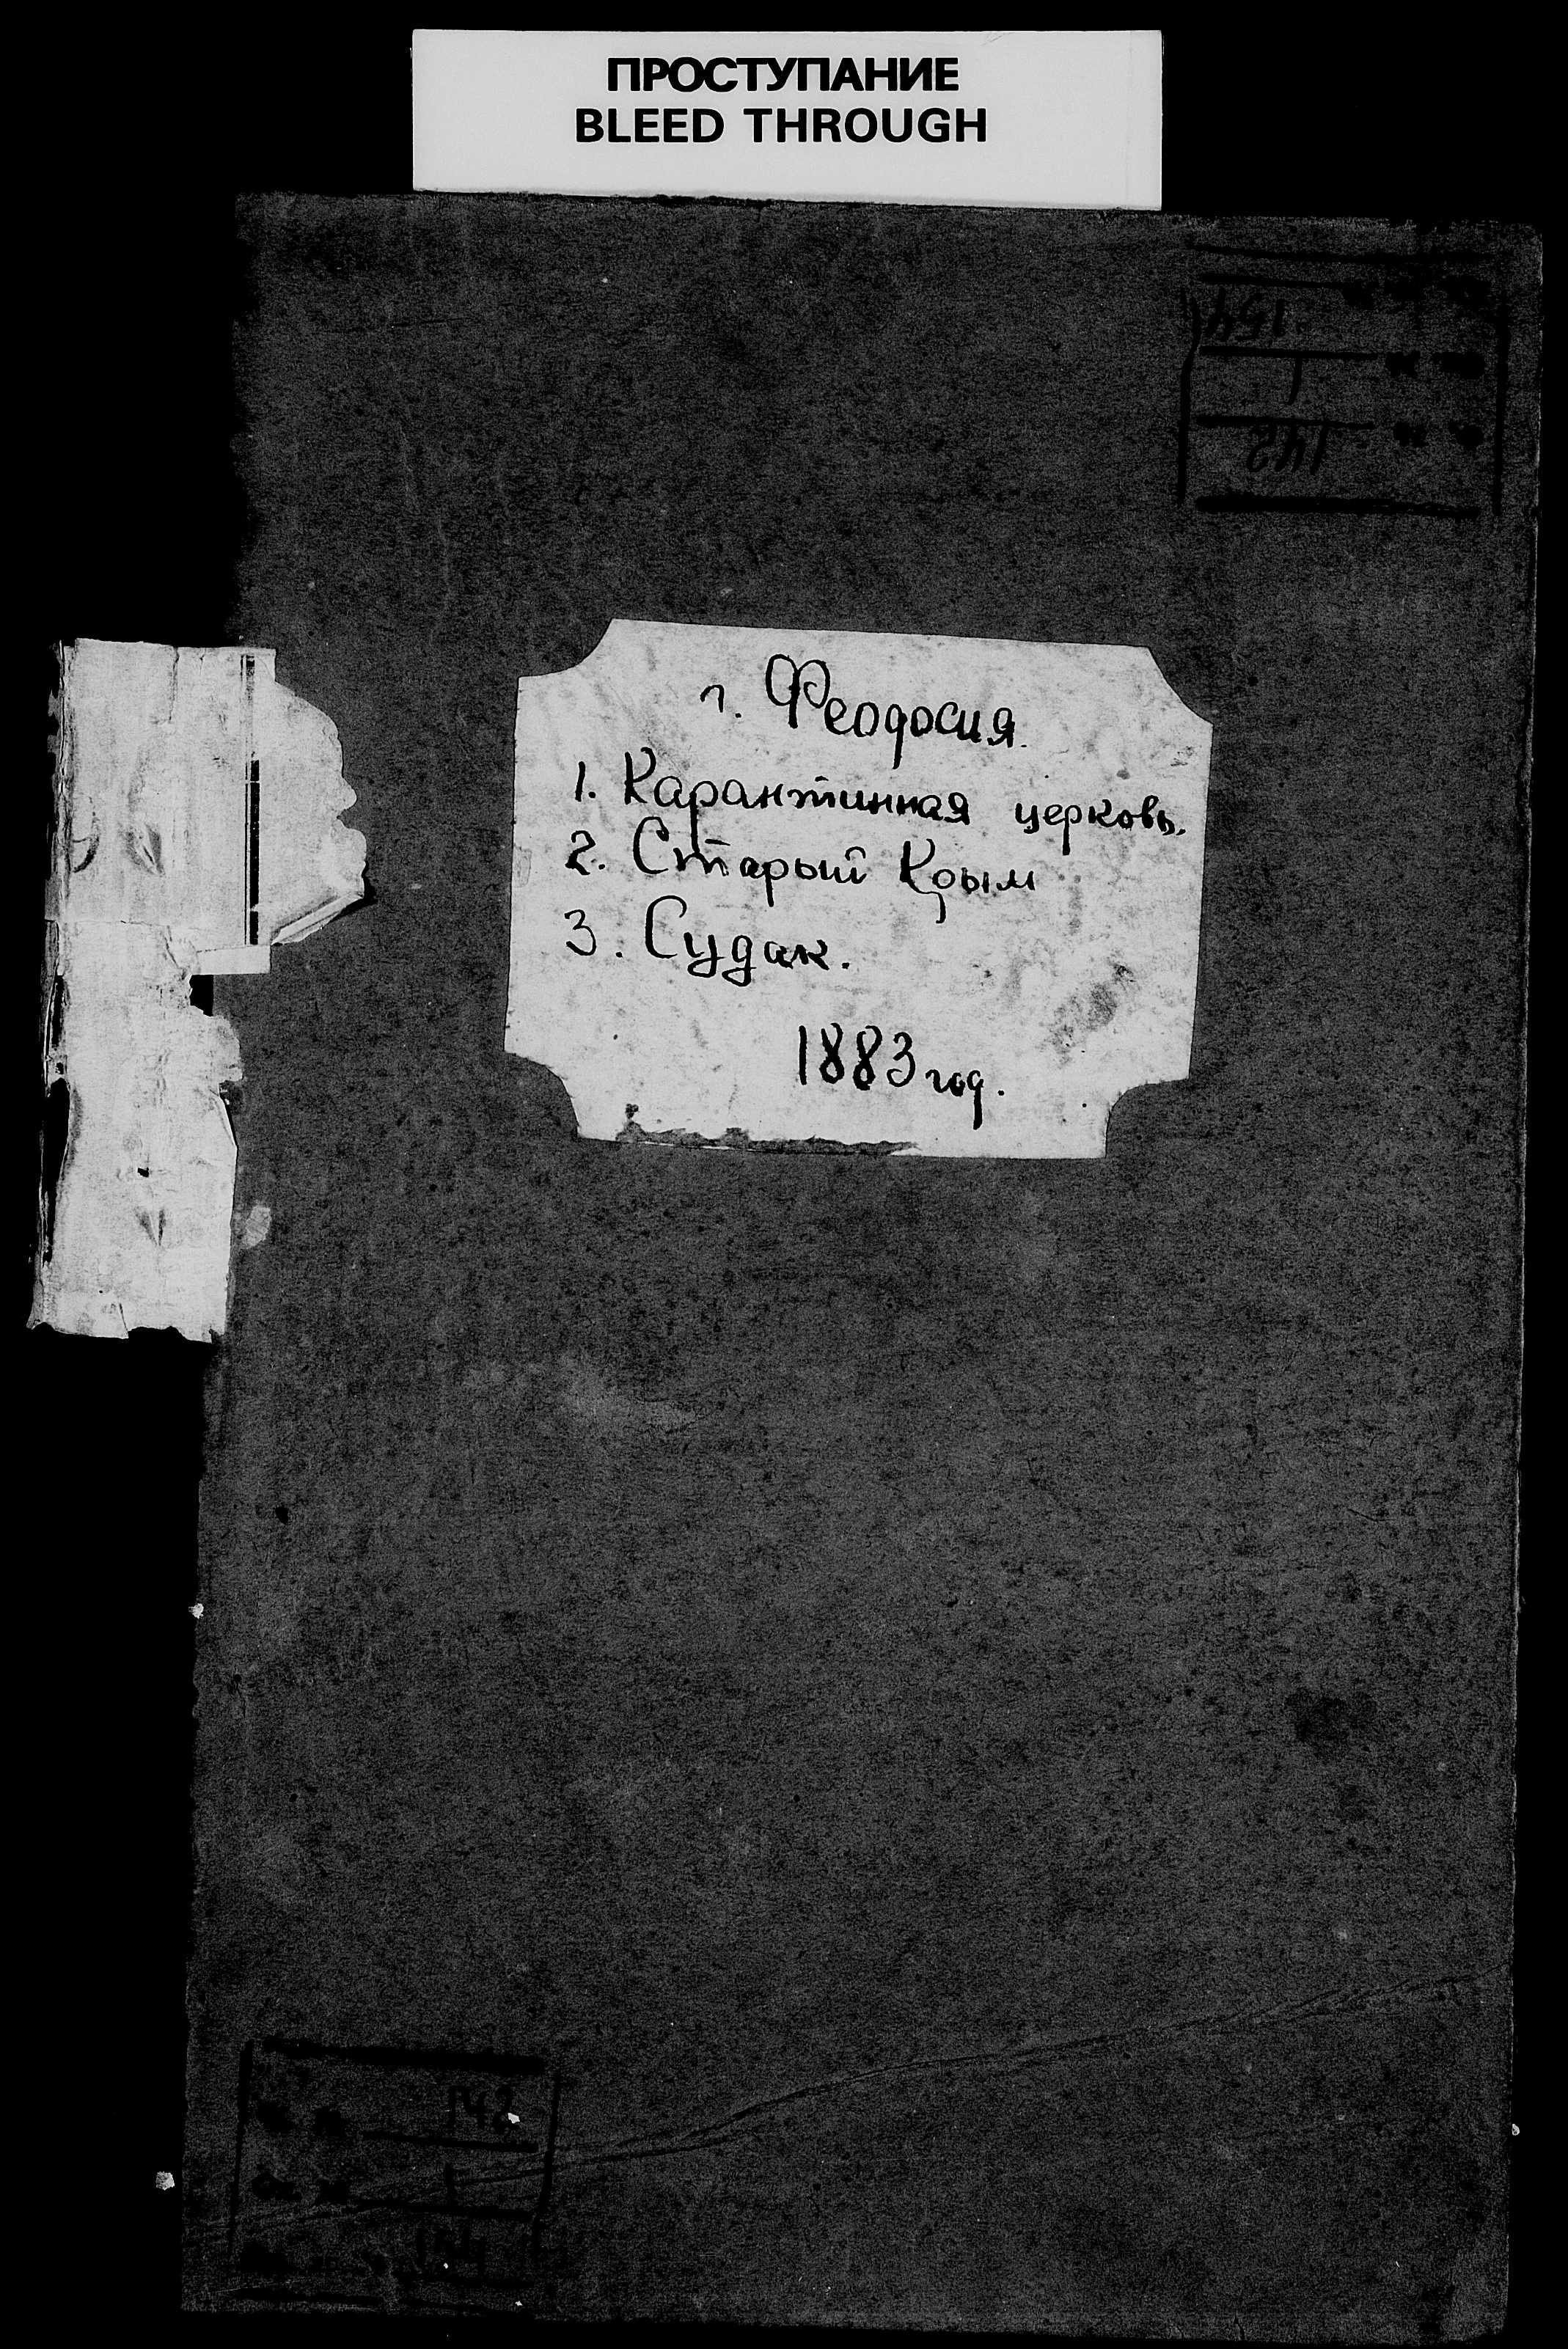 ПРОСТУПАНИЕ
BLEED THROUGH
154
1
142
г. Феодосия.
1. Карантинная церковь.
2. Старый Крым
3. Судак.
1883 год.
142
1